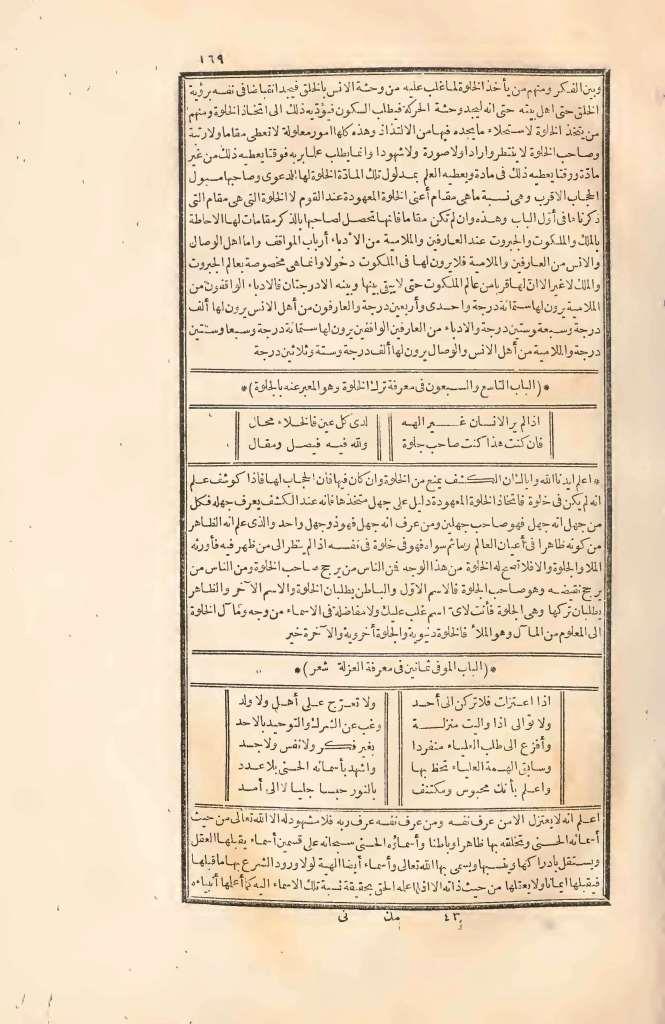 ١٦٩
وبين الفكر ومنهم من يأخذ الخلوة لما غلب عليه من وحشة الانس بالخلق فيجد انقباضا فى نفسه برؤية
الخلق حتى اهل بيته حتى انه ليجد وحشة الحركة فيطلب السكون فيؤديه ذلك الى اتخاذ الخلوة ومنهم
من يتخذ الخلوة لاستحلاء ما يجده فيها من الالتذاذ وهذه كلها امور معلولة لا تعطى مقاما ولا رتبة
وصاحب الخلوة لا ينتظر واردا ولا صورة ولا شهودا وانما يطلب علما بربه فوقتا يعطيه ذلك من غير
مادّة ووقتا يعطيه ذلك فى مادة ويعطيه العلم بمدلول تلك المادّة الخلوة لها الدعوى وصاحبها مسبول
الحجاب الاقرب وهى نسبة ما هى مقام أعنى الخلوة المعهودة عند القوم لا الخلوة التى هى مقام التى
ذكرناه فى أوّل الباب وهذه وان لم تكن مقاما فانها تحصل لصاحبها بالذكر مقامات لها الاحاطة
بالملك والملكوت والجبروت عند العارفين والملامية من الأدباء أرباب المواقف واما اهل الوصال
والانس من العارفين والملامية فلا يرون لها فى الملكوت دخولا وانما هى مخصوصة بعالم الجبروت
والملك لا غير الا ان لها قربا من عالم الملكوت حتى لا يبقى بينها وبينه الا درجتان فالادباء الواقفون من
الملامية يرون لها ستمائة درجة واحدى وأربعين درجة والعارفون من أهل الانس يرون لها ألف
درجة وسبعة وستين درجة والادباء من العارفين الواقفين يرون لها ستمائة درجة وسبعا وستين
درجة والملامية من أهل الانس والوصال يرون لها ألف درجة وستة وثلاثين درجة
* (الباب التاسع والسبعون فى معرفة ترك الخلوة وهو المعبر عنه بالجلوة) *
اذا لم ير الانسان غير الهه لدى كل عين فالخلاء محال
فان كنت هذا كنت صاحب جلوة ولله فيه فيصل ومقال
* اعلم ايدنا الله واياك ان الكشف يمنع من الخلوة وان كان فيها فان الحجاب لها فاذا كوشف علم
انه لم يكن فى خلوة فاتخاذ الخلوة المعهودة دليل على جهل متخذها فانه عند الكشف يعرف جهله فكل
من جهل انه جهل فهو صاحب جهلين ومن عرف انه جهل فهو ذو جهل واحد والذى علم انه الظاهر
من كونه ظاهرا فى أعيان العالم وماثم سواه فهو فى خلوة فى نفسه اذا لم ينظر الى من ظهر فيه فأورثه
الملا والجلوة والافلا تصح له الخلوة من هذا الوجه فمن الناس من يرجح صاحب الخلوة ومن الناس من
يرجح نقيضه وهو صاحب الجلوة فالاسم الاوّل والباطن يطلبان الخلوة والاسم الآخر والظاهر
يطلبان تركها وهى الجلوة فأنت لاىّ اسم غلب عليك ولا مفاضلة فى الاسماء من وجه ومآل الخلوة
الى المعلوم من المآل وهو الملأ فالخلوة دنيوية والجلوة أخروية والآخرة خير
* (الباب الموفى ثمانين فى معرفة العزلة شعر) *
اذا اعتزلت فلا تركن الى أحد ولا تعرّج على أهل ولا ولد
ولا توالى اذا واليت منزلة وغب عن الشرك والتوحيد بالاحد
وأفزع الى طلب العلياء منفردا بغير فكر ولا نفس ولا جسد
وسابق الهمة العلياء تحظ بها واشهد بأسمائه الحسنى بلا عدد
واعلم بأنك محبوس ومكتنف بالنور حبسا جليا لا الى أمد
اعلم انه لا يعتزل الامن عرف نفسه ومن عرف نفسه عرف ربه فلا مشهود له الا الله تعالى من حيث
أسمائه الحسنى وتخلقه بها ظاهرا وباطنا وأسماؤه الحسنى سبحانه على قسمين أسماء يقبلها العقل
ويستقل بادراكها وينسبها ويسمى بها الله تعالى وأسماء أيضا الهية لولا ورود الشرع بها ما قبلها
فيقبلها ايمانا ولا يعقلها من حيث ذاته الا ان أعلمه الحق بحقيقة نسبة تلك الاسماء اليه كما أعلمها أنبياءه
٤٣ مك نى